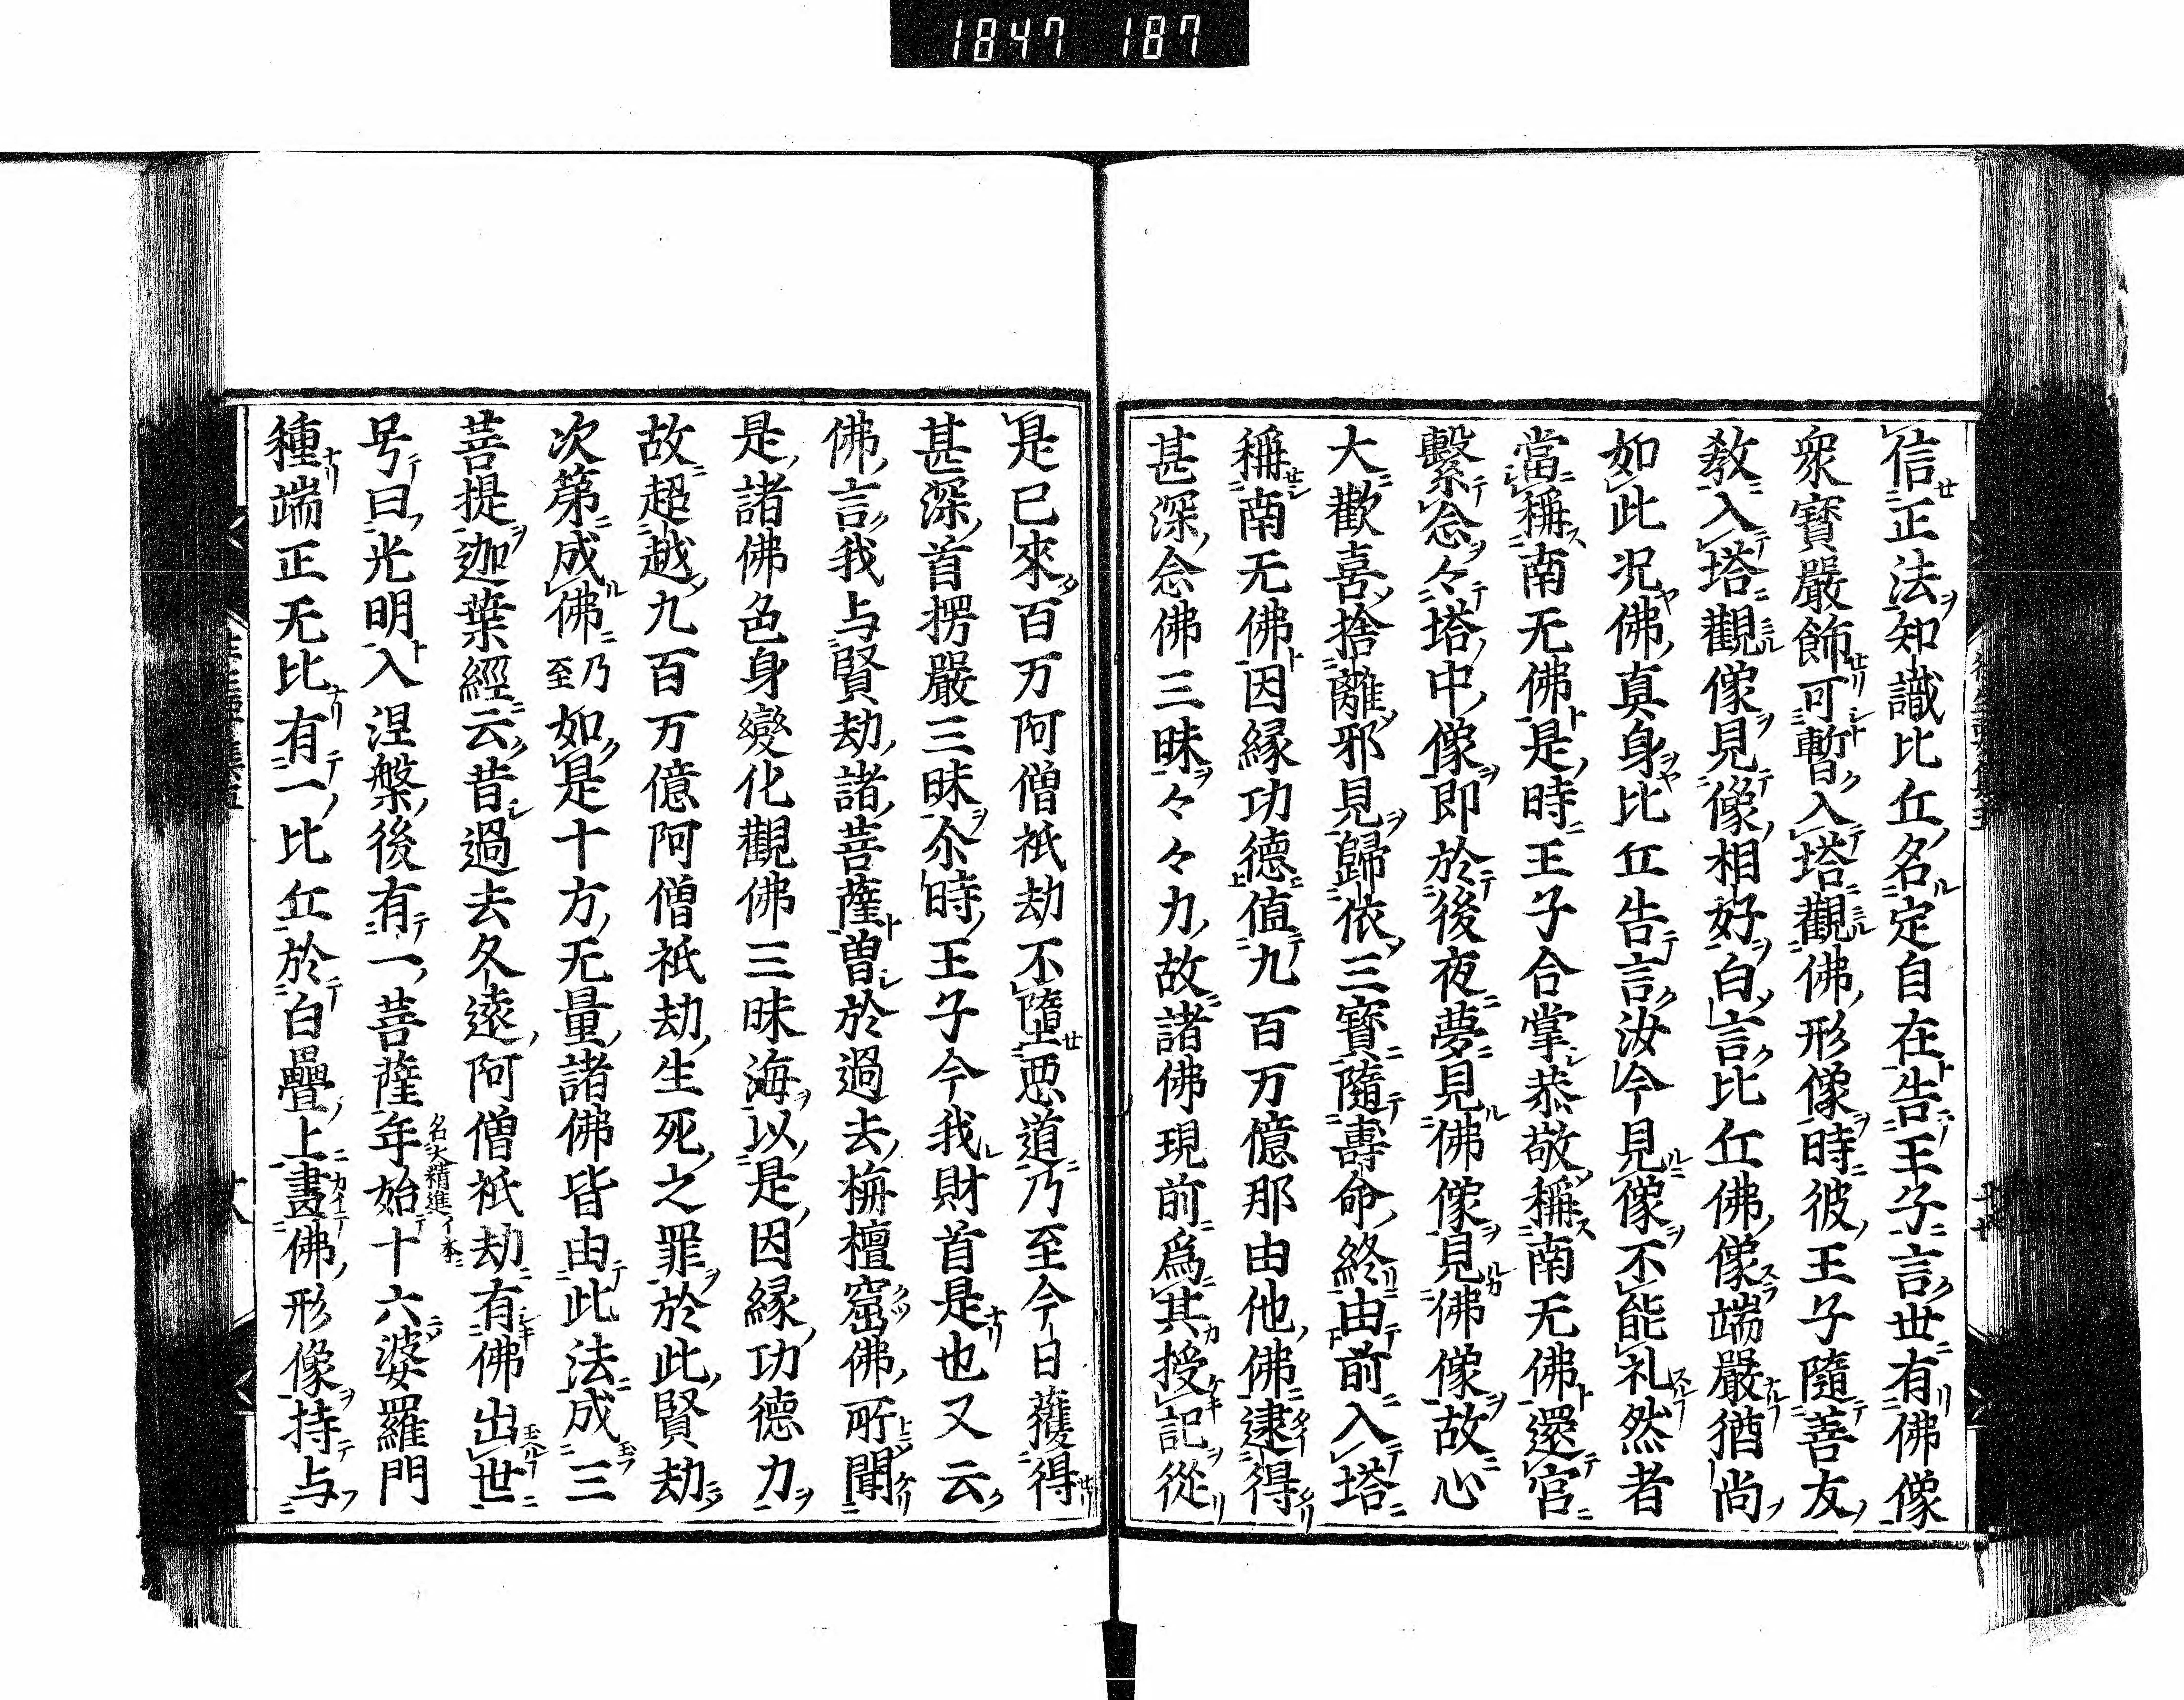 1847 187
信正法知識比丘名定自在告王子言世有佛像
衆寳嚴飾可暫入塔觀佛形像時彼王子隨善友
教入塔觀像見像相好白言比丘佛像端嚴猶尚
如此况佛真身比丘告言汝今見像不能礼然者
當稱南无佛是時王子合掌恭敬稱南无佛還宮
繫念々塔中像即於後夜夢見佛像見佛像故心
大歡喜捨離邪見歸依三寳隨壽命終由前入塔
稱南无佛因縁功德值九百万億那由他佛逮得
甚深念佛三昧々々力故諸佛現前爲其授記從
是已來百万阿僧祇劫不墮悪道乃至今日獲得
甚深首楞嚴三昧尒時王子今我財首是也又云
佛言我与賢劫諸菩薩曽於過去栴檀窟佛所聞
是諸佛色身變化觀佛三昧海以是因縁功德力
故超越九百万億阿僧祇劫生死之罪於此賢劫
次第成佛乃至如是十方无量諸佛皆由此法成三
菩提迦葉經云昔過去久遠阿僧祇劫有佛出世
号曰光明入涅槃後有一菩薩名大精進イ本年始十六婆羅門
種端正无比有一比丘於白疊上畫佛形像持与